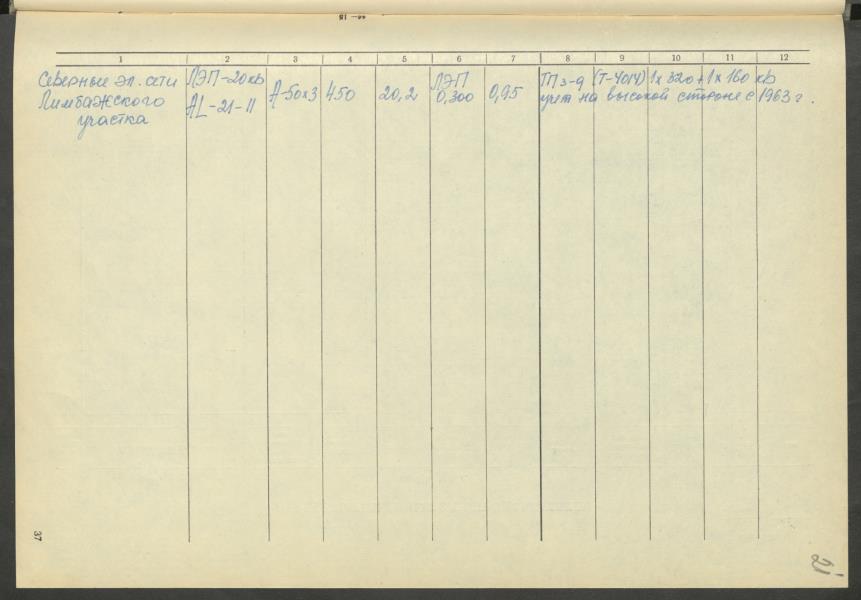 1 2 3 4 5 6 7 8 9 10 11 12
Северные эл. сети ЛЭП-20кв А-50х3 450 20,2 ЛЭП 0,95 ТП з-д (Т-4014) 1х320+1х160 кв
Лимбажского AL-21-11 0,300 учет на высокой стороне с 1963 г.
участка
37